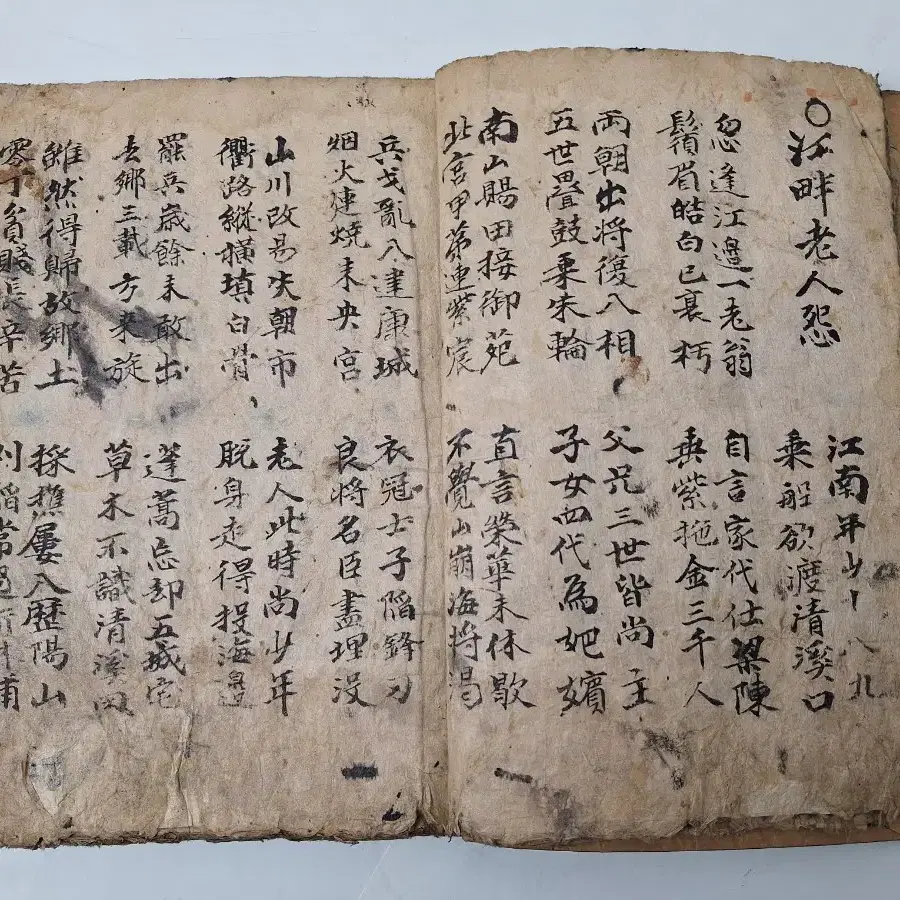 ○江畔老人怨
江南年少十八九
乘船欲渡清溪口
忽逢江邊一老翁
鬚眉皓白已衰朽
自言家代仕梁陳
垂紫拖金三千人
両朝出將復入相
五世疊鼓乘朱輪
父兄三世皆尚主
子女四代為妃嬪
南山賜田接御苑
北宮甲第連紫宸
直言榮華未休歇
不覺山崩海將渴
兵戈亂入建康城
烟火連燒未央宮
衣冠士子陷鋒刃
良將名臣盡埋沒
山川改易失朝市
衢路縱橫填白骨
老人此時尚少年
脫身走得投海邊
罷兵歲餘未敢出
去鄉三載方來旋
蓬蒿忘却五城宅
草木不識清溪田
雖然得歸故鄉土
零丁貧賤長辛苦
採樵屢入歷陽山
稻常過